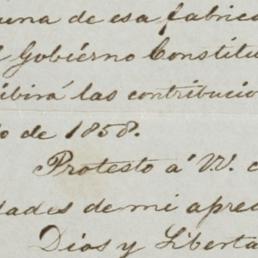 una de esa fabrica
l Gobiérno Constitu
ibirá las contribucio
o de 1858.
Protesto á VV. c
dades de mi aprec
Dios y Liberta